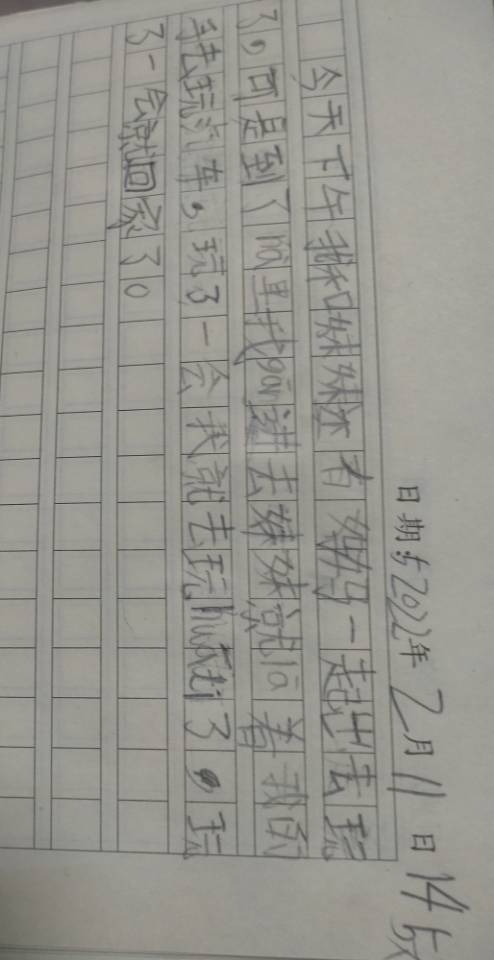 日期:2022年2月11日 14
今天下午我和妹妹还有妈妈一起出去玩
了,可是到了那里我gāng进去妹妹就lā着我的
手去玩汽车,玩了一会我就去玩huá梯了,玩
了一会就回家了。